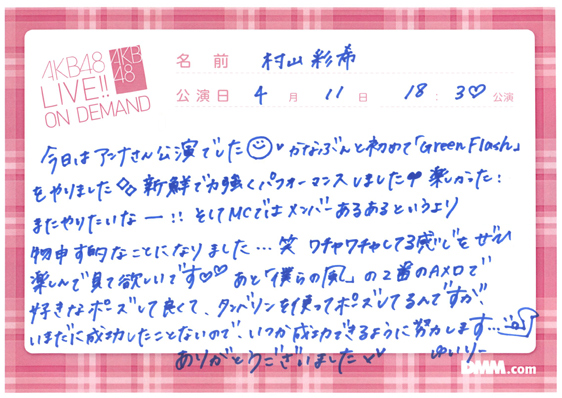 AKB48
LIVE!!
ON DEMAND
AKB
48
名前 村山彩希
公演日 4月11日 18:30公演
今日はアンナさん公演でした かなぶんと初めて「Green Flash」
をやりました 新鮮で力強くパフォーマンスしました 楽しかった!
またやりたいなー!! そしてMCではメンバーあるあるというより
物申す的なことになりました…笑 ワチャワチャしてる感じをぜひ
楽しんで見て欲しいです♡♡ あと「僕らの風」の2番のAメロで
好きなポーズして良くて、タンバリンを使ってポーズしてるんですが、
いまだに成功したことないので、いつか成功できるように努力します…
ありがとうございました
ゆいりー
DMM.com